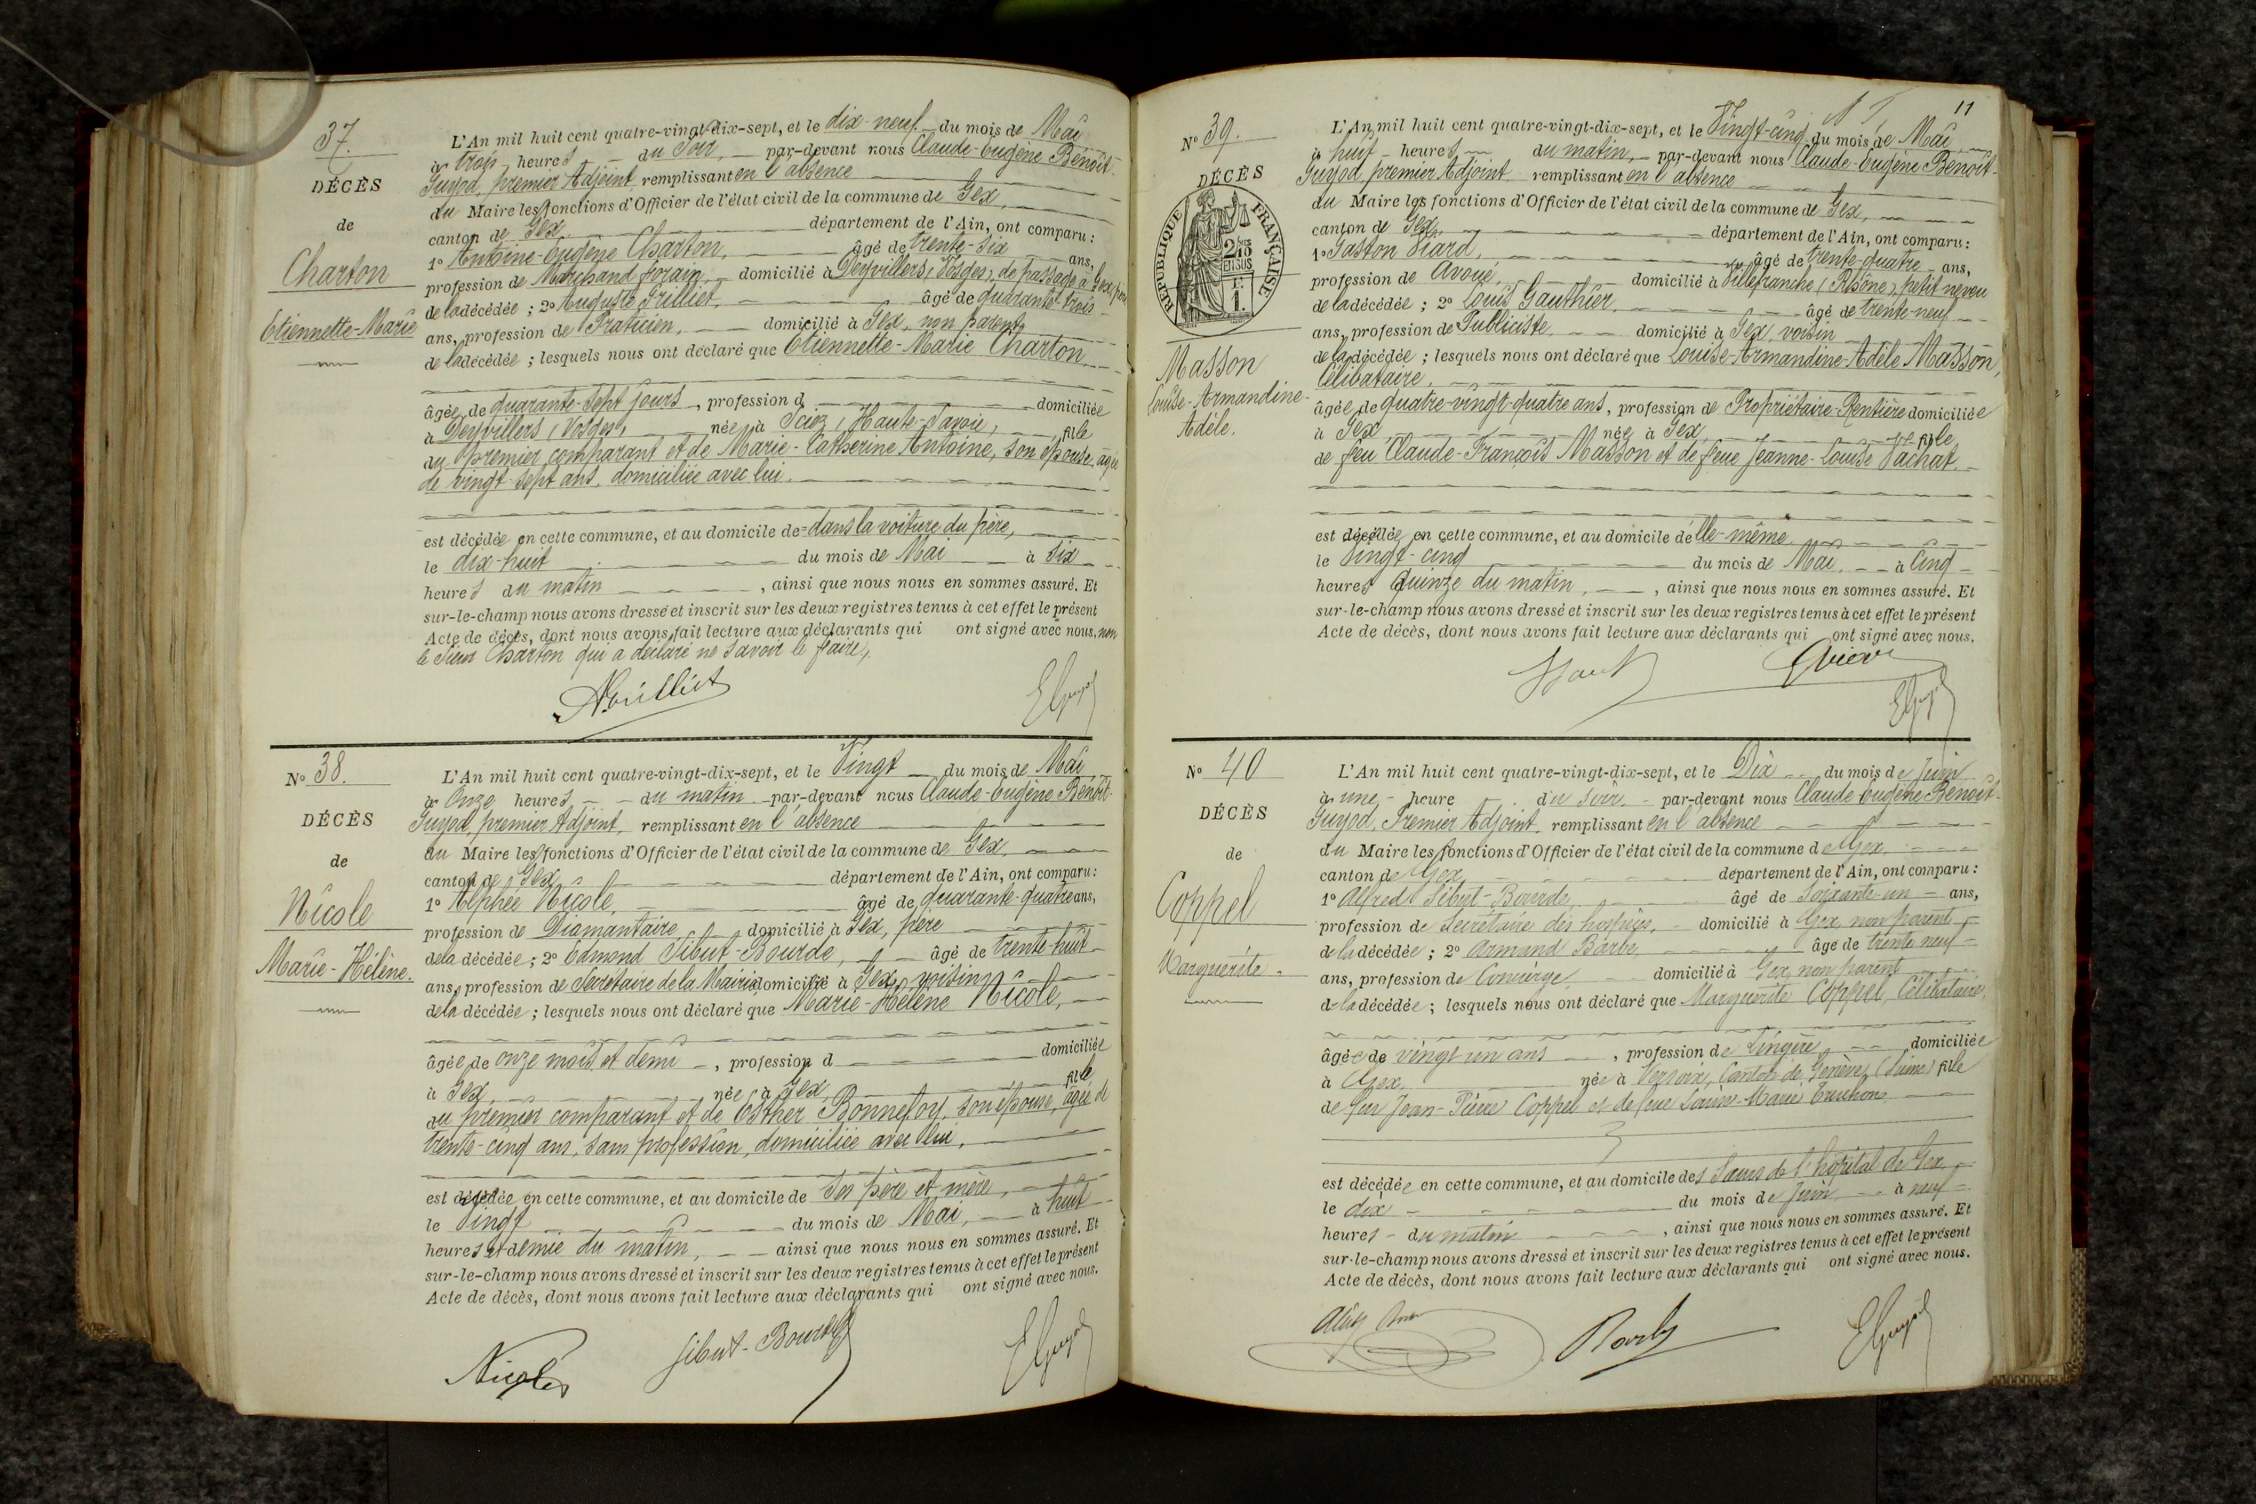 37.
DÉCÈS
de
Charton
Etiennette-Marie
L'An mil huit cent quatre-vingt-dix-sept, et le dix-neuf du mois de Mai
à trois heures du soir, par-devant nous Claude-Eugène Benoît-
Guyod, premier Adjoint remplissant en l'absence
du Maire les fonctions d'Officier de l'état civil de la commune de Gex,
canton de Gex département de l'Ain, ont comparu :
1º Antoine-Eugène Charton, âgé de trente-six ans,
profession de Marchand forain domicilié à Deyvillers (Vosges), de passage à Gex, père
de la décédée ; 2º Auguste Grilliet, âgé de quarante-trois
ans, profession de Praticien, domicilié à Gex, non parent
de la décédée ; lesquels nous ont déclaré que Etiennette-Marie Charton
âgée de quarante-sept jours, profession d domiciliée
à Deyvillers (Vosges), née à Sciez (Haute-Savoie), fille
du premier comparant et de Marie-Catherine Antoine, son épouse, âgée
de vingt-sept ans, domiciliée avec lui.
est décédée en cette commune, et au domicile de dans la voiture du père,
le dix-huit du mois de Mai à six
heures du matin, ainsi que nous nous en sommes assuré. Et
sur-le-champ nous avons dressé et inscrit sur les deux registres tenus à cet effet le présent
Acte de décès, dont nous avons fait lecture aux déclarants qui ont signé avec nous, non
le Sieur Charton qui a déclaré ne savoir le faire.
EGuyod
Nº 38.
DÉCÈS
de
Nicole
Marie-Hélène.
L'An mil huit cent quatre-vingt-dix-sept, et le Vingt du mois de Mai
à Onze heures du matin par-devant nous Claude-Eugène Benoît-
Guyod, premier Adjoint, remplissant en l'absence
du Maire les fonctions d'Officier de l'état civil de la commune de Gex,
canton de Gex département de l'Ain, ont comparu :
1º Alphée Nicole, âgé de quarante-quatre ans,
profession de Diamantaire domicilié à Gex, père
de la décédée ; 2º Edmond Sibut-Bourde, âgé de trente-huit
ans, profession de Secrétaire de la Mairie domicilié à Gex, voisin
de la décédée ; lesquels nous ont déclaré que Marie-Hélène Nicole,
âgée de onze mois et demi, profession d domiciliée
à Gex, née à Gex, fille
du premier comparant et de Esther Bonnefoy, son épouse, âgée de
trente-cinq ans, sans profession, domiciliée avec lui,
est décédée en cette commune, et au domicile de ses père et mère,
le Vingt du mois de Mai, à huit
heures et demie du matin, ainsi que nous nous en sommes assuré. Et
sur-le-champ nous avons dressé et inscrit sur les deux registres tenus à cet effet le présent
Acte de décès, dont nous avons fait lecture aux déclarants qui ont signé avec nous.
Nicole Sibut-Bourde EGuyod
11
Nº 39.
DÉCÈS
RÉPUBLIQUE FRANÇAISE
2/10 EN SUS
Masson
Louise-Armandine-
Adèle.
L'An mil huit cent quatre-vingt-dix-sept, et le Vingt-cinq du mois de Mai
à huit heures du matin, par-devant nous Claude-Eugène Benoît-
Guyod, premier Adjoint remplissant en l'absence
du Maire les fonctions d'Officier de l'état civil de la commune de Gex,
canton de Gex, département de l'Ain, ont comparu :
1º Gaston Viard, âgé de trente-quatre ans,
profession de Avoué, domicilié à Villefranche (Rhône), petit neveu
de la décédée ; 2º Louis Gauthier, âgé de trente-neuf
ans, profession de Publiciste domicilié à Gex, voisin
de la décédée ; lesquels nous ont déclaré que Louise-Armandine-Adèle Masson,
Célibataire,
âgée de quatre-vingt-quatre ans, profession de Propriétaire-Rentière domiciliée
à Gex, née à Gex, fille
de feu Claude-François Masson et de feue Jeanne-Louise Vachat
est décédée en cette commune, et au domicile d'elle-même
le Vingt-cinq du mois de Mai à Cinq
heures quinze du matin, ainsi que nous nous en sommes assuré. Et
sur-le-champ nous avons dressé et inscrit sur les deux registres tenus à cet effet le présent
Acte de décès, dont nous avons fait lecture aux déclarants qui ont signé avec nous.
EGuyod
Nº 40
DÉCÈS
de
Coppel
Marguerite.
L'An mil huit cent quatre-vingt-dix-sept, et le Dix du mois de Juin
à une heure du soir par-devant nous Claude Eugène Benoît-
Guyod, Premier Adjoint, remplissant en l'absence
du Maire les fonctions d'Officier de l'état civil de la commune de Gex
canton de Gex département de l'Ain, ont comparu :
1º Alfred Sibut-Bourde, âgé de soixante-un ans,
profession de Secrétaire des hospices, domicilié à Gex, non parent
de la décédée ; 2º Armand Barbe, âgé de trente neuf
ans, profession de Concierge domicilié à Gex, non parent
de la décédée ; lesquels nous ont déclaré que Marguerite Coppel, Célibataire,
âgée de vingt un ans, profession de Lingère domiciliée
à Gex, née à Versoix, Canton de Genève (Suisse) fille
de feu Jean-Pierre Coppel et de feue Louise-Marie Truchon
est décédée en cette commune, et au domicile des Sœurs de l'hôpital de Gex
le dix du mois de Juin à neuf
heures du matin, ainsi que nous nous en sommes assuré. Et
sur-le-champ nous avons dressé et inscrit sur les deux registres tenus à cet effet le présent
Acte de décès, dont nous avons fait lecture aux déclarants qui ont signé avec nous.
Barbe EGuyod